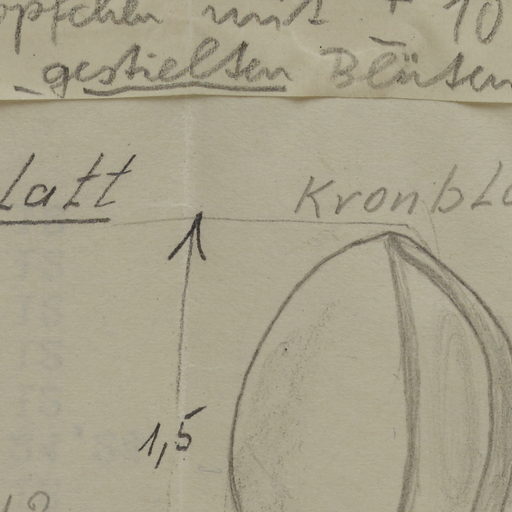 öpfchen mit ± 10
gestielten Blüten
latt
Kronbla
1,5